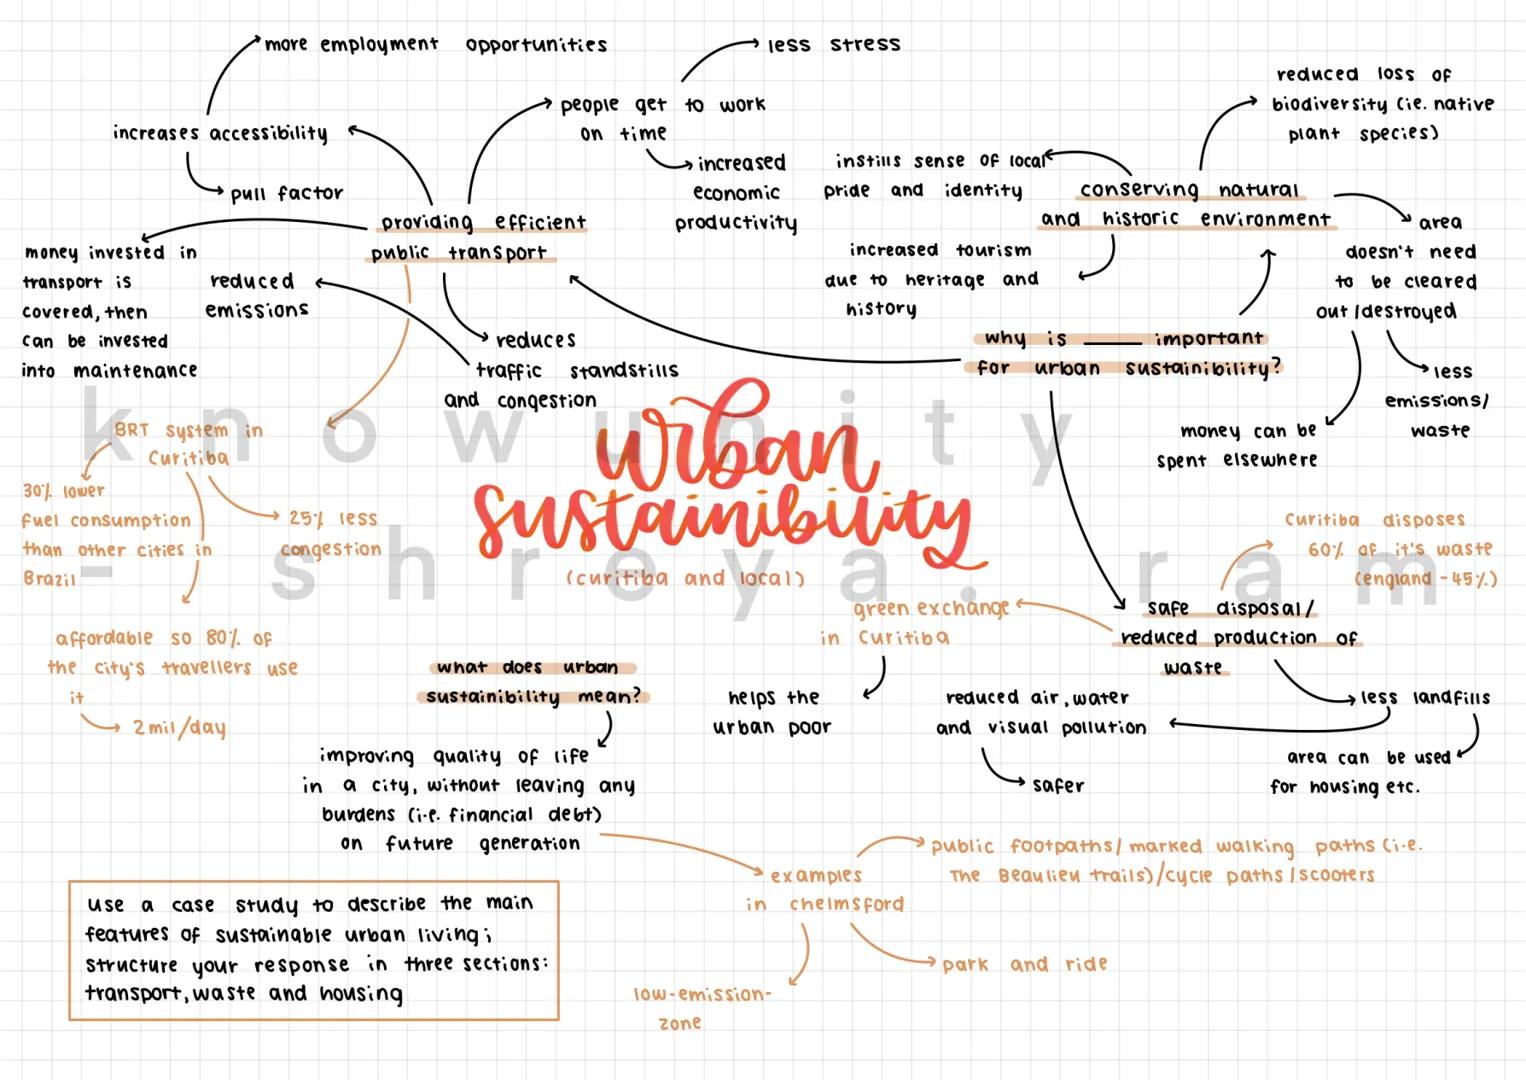 more employment opportunities
less stress
increases accessibility
pull factor
people get to work
on time
increased
economic
productivity
providing efficient
public transport
money invested in
transport is
covered, then
can be invested
into maintenance
reduced
emissions
reduces
traffic standstills
and congestion
reduced loss of
biodiversity (ie. native
plant species)
instills sense of local
pride and identity
conserving natural
and historic environment
increased tourism
due to heritage and
history
area
doesn't need
to be cleared
out/destroyed
less
emissions/
waste
money can be
spent elsewhere
why is ____ important
for urban sustainibility?
knowunity
BRT system in
Curitiba
30% lower
fuel consumption
than other cities in
Brazil
25% less
congestion
affordable so 80% of
the city's travellers use
it
2mil/day
urban
sustainibility
(curitiba and local)
- shreya.ram
Curitiba disposes
60% of it's waste
(england -45%)
safe disposal/
reduced production of
waste
green exchange
in Curitiba
helps the
urban poor
less landfills
reduced air, water
and visual pollution
safer
area can be used
for housing etc.
what does urban
sustainibility mean?
improving quality of life
in a city, without leaving any
burdens (i.e. financial debt)
on future generation
examples
in chelmsford
public footpaths/marked walking paths (i.e.
The Beaulieu trails)/cycle paths/scooters
park and ride
low-emission-
zone
use a case study to describe the main
features of sustainable urban living;
structure your response in three sections:
transport, waste and housing